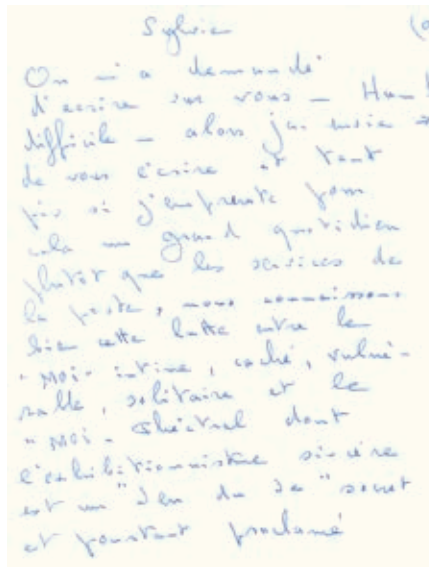 Sylvie
On m'a demandé
d'écrire sur vous – Hum!
difficile – alors j'ai envie
de vous écrire et tant
pis si j'emprunte pour
cela un grand quotidien
plutôt que les services de
la poste, nous connaissons
bien cette lutte entre le
"MOI" intime, caché, vulné-
rable, solitaire et le
"MOI" théâtral dont
l'exhibitionnisme sincère
est un "Jeu du Je" secret
et pourtant proclamé